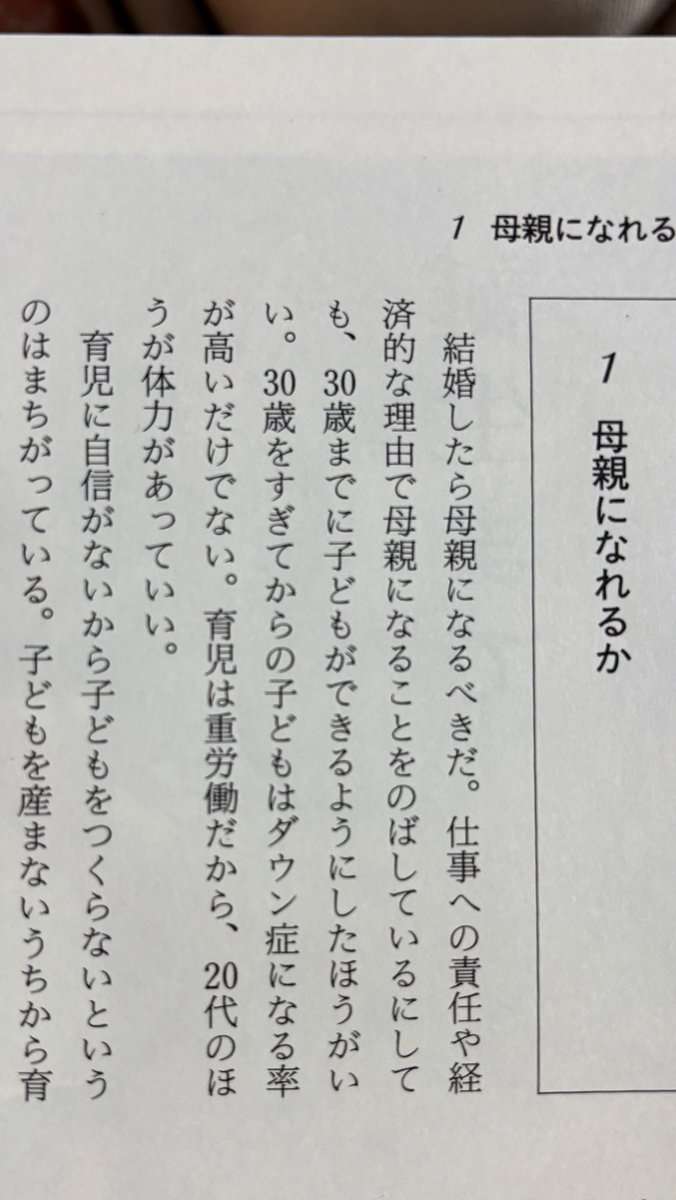 1 母親になれる
1 母親になれるか
結婚したら母親になるべきだ。仕事への責任や経
済的な理由で母親になることをのばしているにして
も、30歳までに子どもができるようにしたほうがい
い。30歳をすぎてからの子どもはダウン症になる率
が高いだけでない。育児は重労働だから、20代のほ
うが体力があっていい。
育児に自信がないから子どもをつくらないという
のはまちがっている。子どもを産まないうちから育